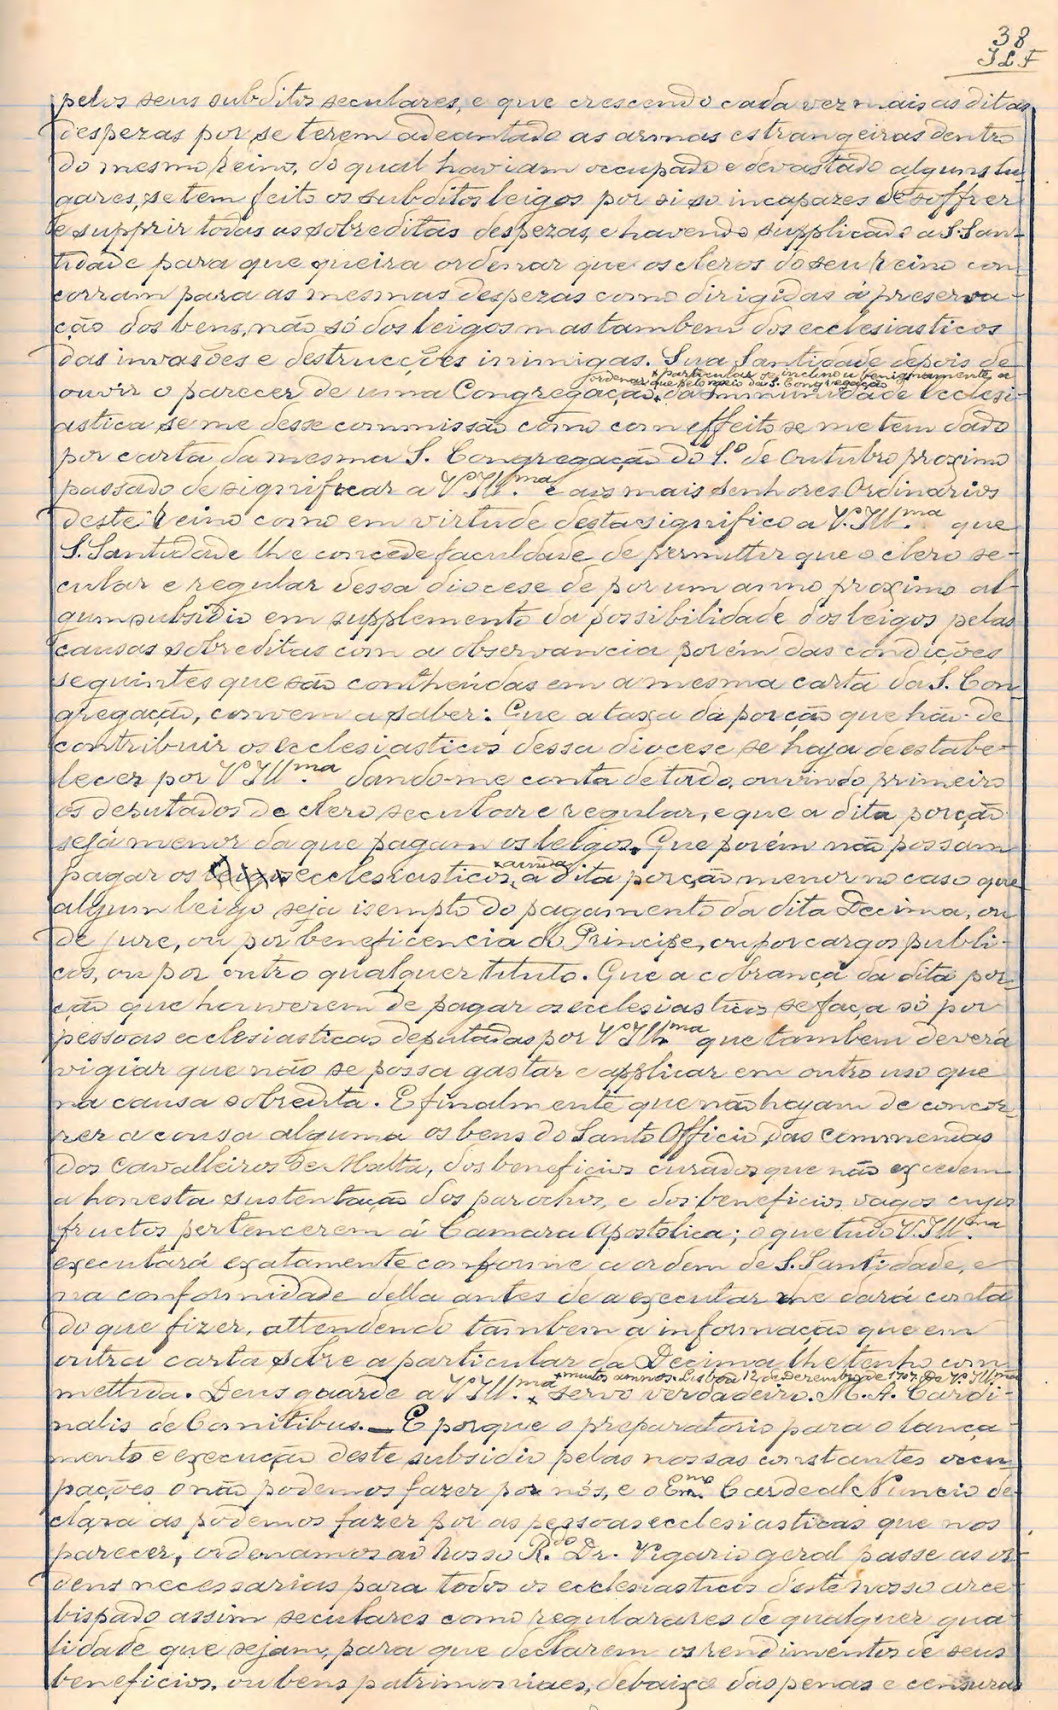 38
J L F
pelos seus subditos seculares, e que crescendo cada vez mais as ditas
despezas por se terem adeantado as armas estrangeiras dentro
do mesmo Reino, do qual haviam occupado e devastado alguns lu-
gares, se tem feito os subditos leigos por si só incapazes de soffrer
e supprir todas as sobreditas despezas, e havendo supplicado a S. San-
tidade para que queira ordenar que os cleros do seu Reino con-
corram para as mesmas despezas como dirigidas á preserva-
ção dos bens, não só dos leigos mas tambem dos ecclesiasticos
das invasões e destrucções inimigas. Sua Santidade depois de
× particular se inclinou benignamente a
ordenar que pelo meio da S. Congregação
ouvir o parecer de uma Congregação × da Immunidade Ecclesi-
astica se me desse commissão como com effeito se me tem dado
por carta da mesma S. Congregação do 1.º de Outubro proximo
passado de significar a V. Ill.ma e aos mais senhores Ordinarios
deste Reino como em virtude desta significo a V. Ill.ma que
S. Santidade lhe concede faculdade de permittir que o clero se-
cular e regular dessa diocese dê por um anno proximo al-
gum subsidio em supplemento da possibilidade dos leigos pelas
causas sobreditas com a observancia porém das condições
seguintes que são contheudas em a mesma carta da S. Con-
gregação, convem a saber: Que a taxa da porção que hão de
contribuir os ecclesiasticos dessa diocese se haja de estabe-
lecer por V. Ill.ma dando-me conta de tudo, ouvindo primeiro
os deputados do clero secular e regular, e que a dita porção
seja menor da que pagam os leigos. Que porém não possam
× ainda
pagar os ecclesiasticos × a dita porção menor no caso que
algum leigo seja isempto do pagamento da dita Decima, ou
de jure, ou por beneficencia do Principe, ou por cargos publi-
cos, ou por outro qualquer titulo. Que a cobrança da dita por-
ção que houverem de pagar os ecclesiasticos se faça só por
pessoas ecclesiasticas deputadas por V. Ill.ma que tambem deverá
vigiar que não se possa gastar e applicar em outro uso que
na causa sobredita. E finalmente que não hajam de concor-
rer a cousa alguma os bens do Santo Officio, das Commendas
dos Cavalleiros de Malta, dos beneficios curados que não excedem
a honesta sustentação dos parochos, e dos beneficios vagos cujos
fructos pertencerem á Camara Apostolica; o que tudo V. Ill.ma
executará exatamente conforme a ordem de S. Santidade, e
na conformidade della antes de a executar me dará conta
do que fizer, attendendo tambem á informação que em
outra carta sobre a particular da Decima lhe tenho com-
× muitos annos. Lisboa 12 de Dezembro de 1707. De V. Ill.ma
mettida. Deus guarde a V. Ill.ma × servo verdadeiro. M. A. Cardi-
nalis de Comitibus. — E porque o preparatorio para o lança-
mento e execução deste subsidio pelas nossas constantes occu-
pações o não podemos fazer por nós, e o Em.mo Cardeal Nuncio de-
clara as podemos fazer por as pessoas ecclesiasticas que nos
parecer, ordenamos ao nosso R.do Dr. Vigario geral passe as or-
dens necessarias para todos os ecclesiasticos deste nosso arce-
bispado assim seculares como regularares de qualquer qua-
lidade que sejam, para que declarem os rendimentos de seus
beneficios, ou bens patrimoniaes, debaixo das penas e censuras